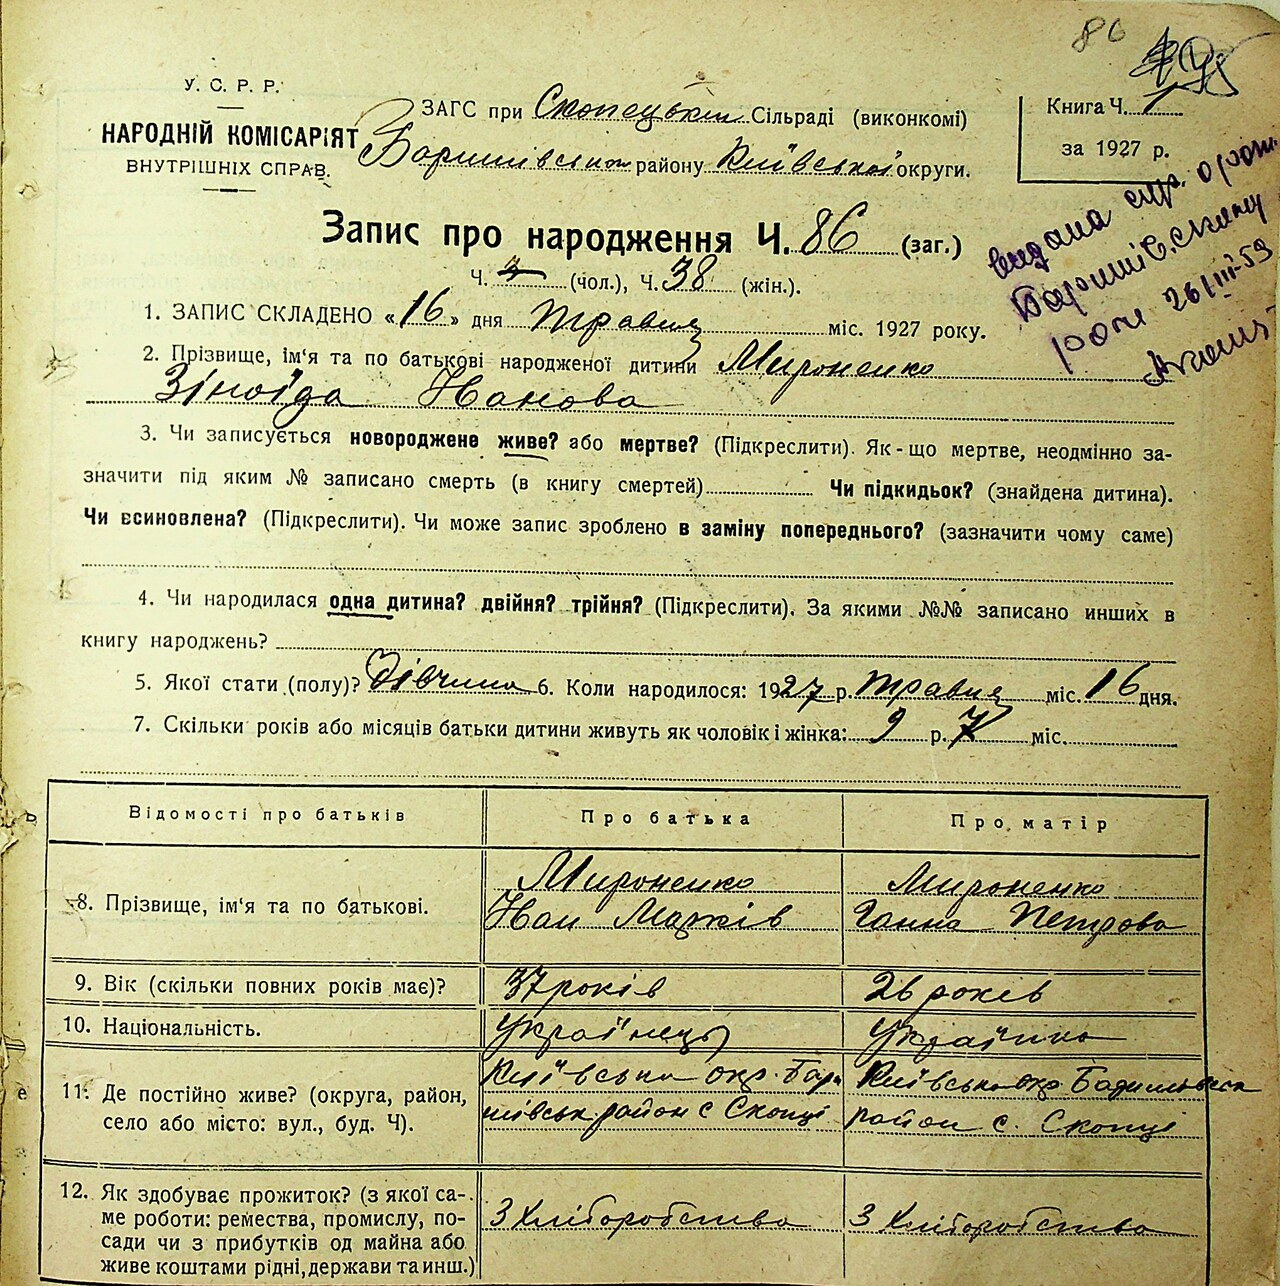 86
У. С. Р. Р.
НАРОДНІЙ КОМІСАРІЯТ
ВНУТРІШНІХ СПРАВ.
ЗАГС при Скопецькій Сільраді (виконкомі)
Баришівського району Київської округи.
Книга Ч. 1
за 1927 р.
Запис про народження Ч. 86 (заг.)
Ч. (чол.), Ч. 38 (жін.).
видана
26/III-59
1. ЗАПИС СКЛАДЕНО «16» дня травня міс. 1927 року.
2. Прізвище, ім'я та по батькові народженої дитини Мироненко
Зіноїда Іванова
3. Чи записується новороджене живе? або мертве? (Підкреслити). Як-що мертве, неодмінно за-
значити під яким № записано смерть (в книгу смертей) Чи підкидьок? (знайдена дитина).
Чи всиновлена? (Підкреслити). Чи може запис зроблено в заміну попереднього? (зазначити чому саме)
4. Чи народилася одна дитина? двійня? трійня? (Підкреслити). За якими №№ записано инших в
книгу народжень?
5. Якої стати (полу)? дівчина 6. Коли народилося: 1927 р. травня міс. 16 дня.
7. Скільки років або місяців батьки дитини живуть як чоловік і жінка: 9 р. 7 міс.
Відомості про батьків Про батька Про матір
8. Прізвище, ім'я та по батькові.
Мироненко
Іван
Мироненко
Ганна Петрова
9. Вік (скільки повних років має)? 37 років 26 років
10. Національність. Українець Українка
11. Де постійно живе? (округа, район,
село або місто: вул., буд. Ч).
Київська окр. Бари
шівськ. район с Скопці
Київська окр. Баришівськ
район с. Скопці
12. Як здобуває прожиток? (з якої са-
ме роботи: ремества, промислу, по-
сади чи з прибутків од майна або
живе коштами рідні, держави та инш.)
З Хліборобства
З Хліборобства